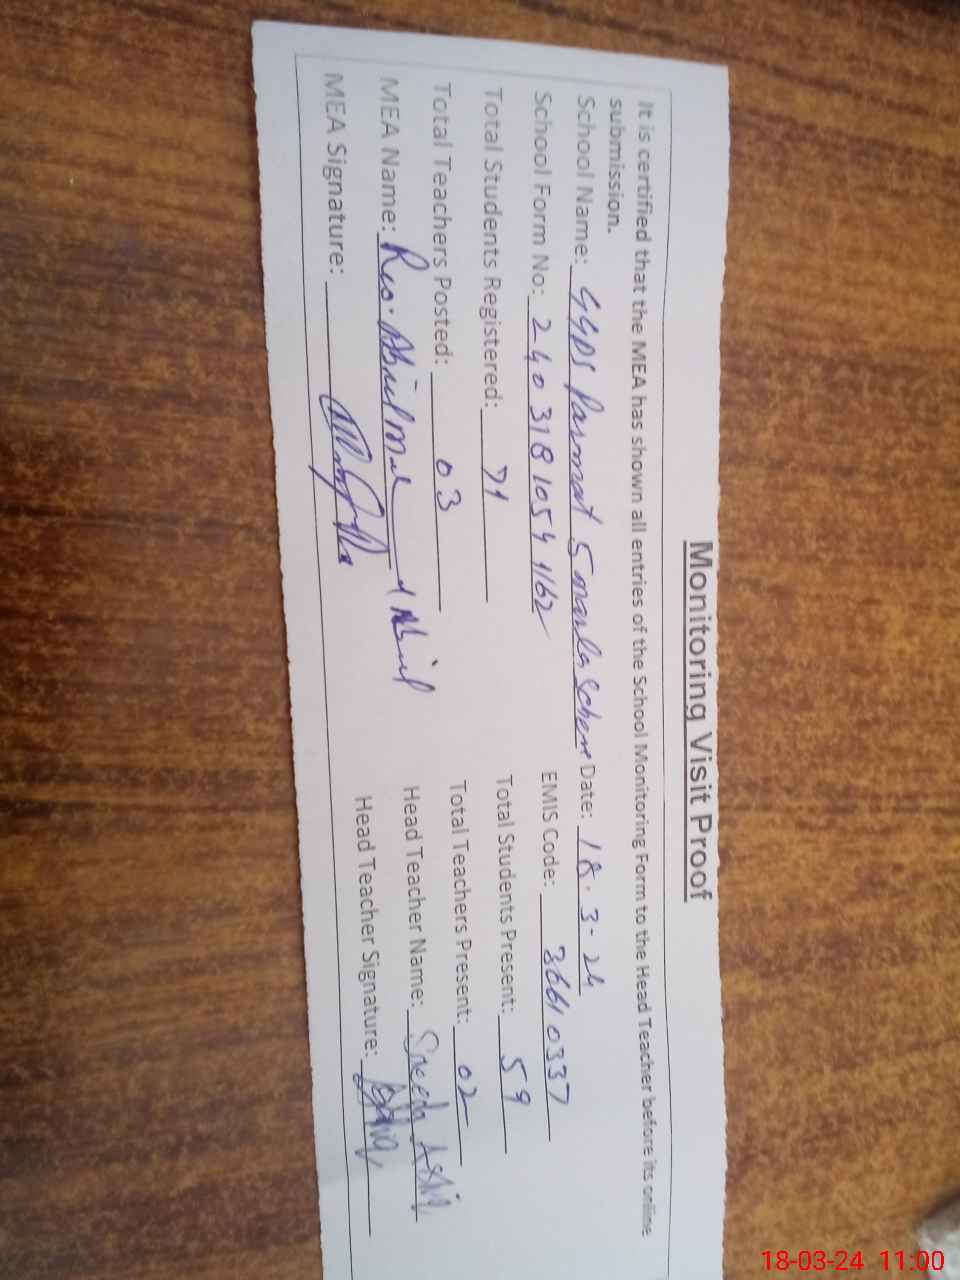 Monitoring Visit Proof
It is certified that the MEA has shown all entries of the School Monitoring Form to the Head Teacher before its online
submission.
School Name: GGPS Parmat 5 marla Schem Date: 18.3-24
School Form No: 2403181054462 EMIS Code: 36610337
Total Students Registered: 71 Total Students Present: 59
Total Teachers Posted: 03 Total Teachers Present: 02
MEA Name: Head Teacher Name: Saeeda
MEA Signature: Head Teacher Signature:
18-03-24 11:00